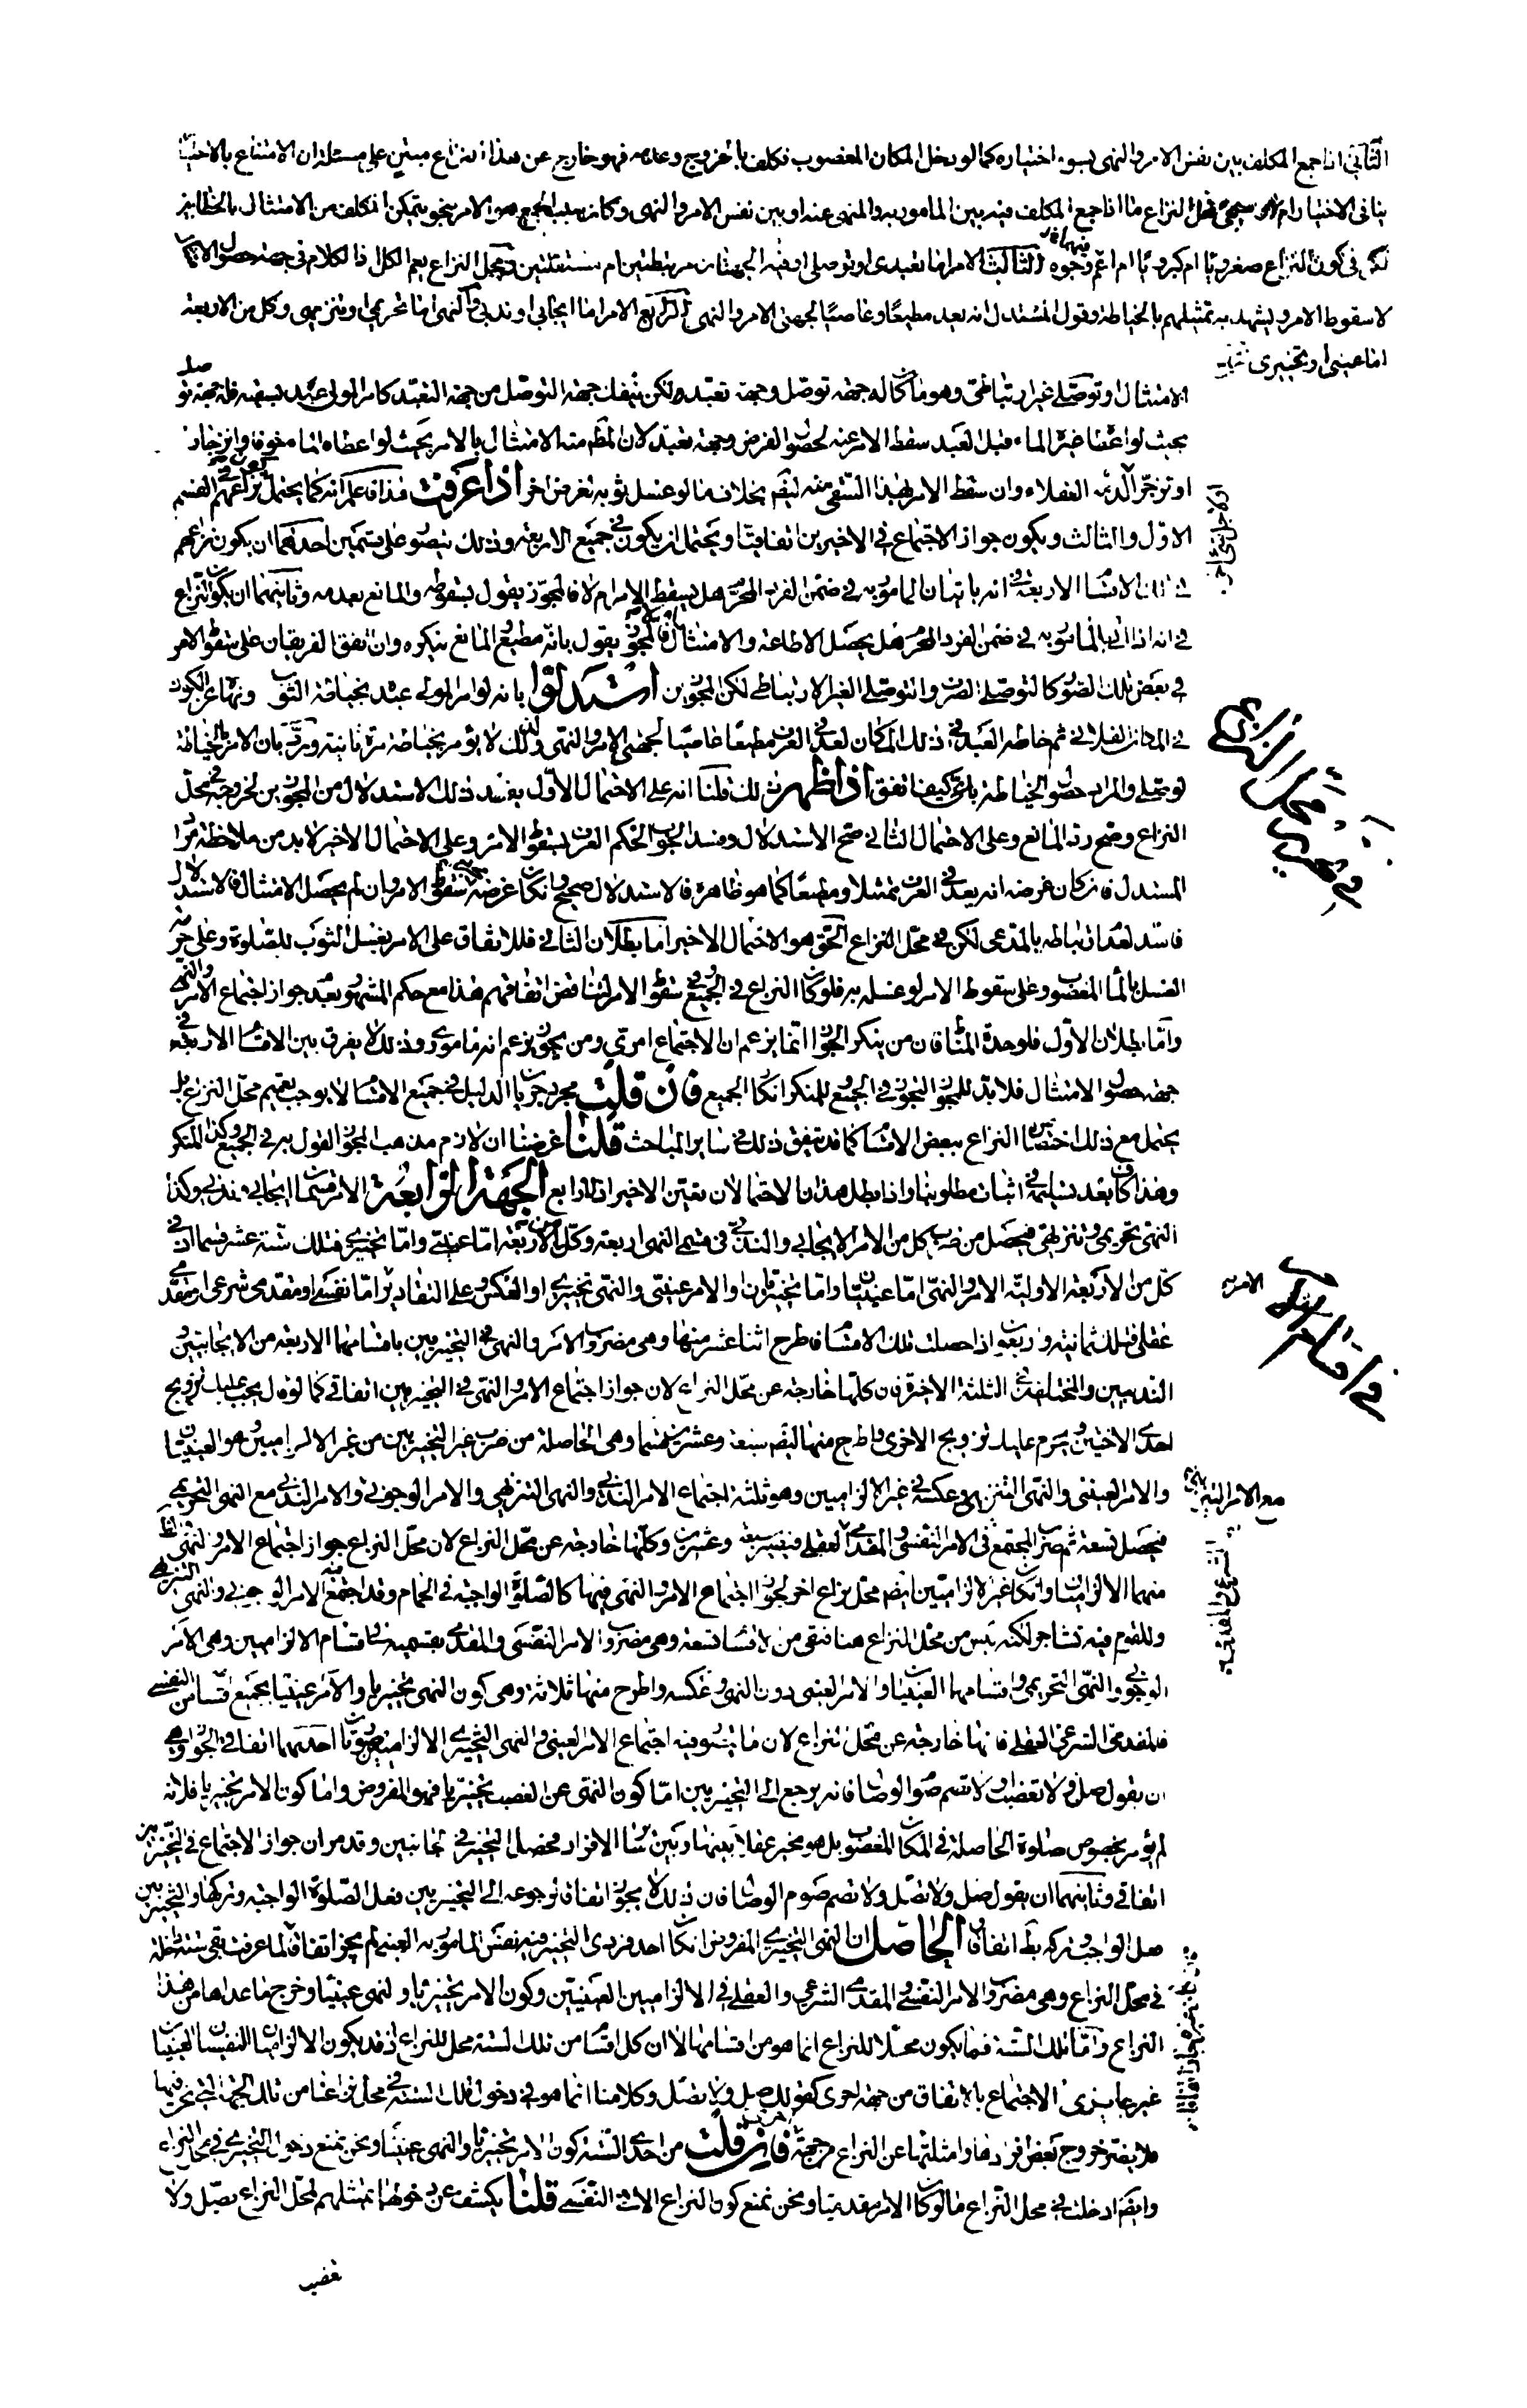 الثاني اذا جمع المكلف بين نفس الامر والنهى بسوء اختياره كما لو دخل المكان المغصوب فكلف بالخروج وعدمه فهو خارج عن هذا النزاع مبني على مسئلة ان الامتناع بالاختيار
ينافى الاختيار ام لا وسيجئ فمحل النزاع ما اذا جمع المكلف فيه بين المامور به والمنهى عنه او بين نفس الامر والنهى وكان سبب الجمع هو الامر بنحو يتمكن المكلف من الامتثال بالخطابين
في كون النزاع صغرويا ام كبرويا ام اعم وجوه الثالث الامر اما تعبدى او توصلى او فيه الجهتان مرتبطتين ام مستقلتين ومحل النزاع يعم الكل اذ الكلام في جهة حصول الامتثال
لا سقوط الامر ويشهد به تمثيلهم بالخياطة وقول المستدل انه يعد مطيعا وعاصيا لجهتى الامر والنهى الرابع الامر اما ايجابى او ندبى والنهى اما تحريمى او تنزيهى وكل من الاربعة
اما عينى او تخييرى
الامتثال او توصلى غير ارتباطى وهو ما كان له جهة توصل وجهة تعبد ولكن ينفك جهة التوصل من جهة التعبد كامر المولى عبده بسقيه فله جهة توصل
بحيث لو اعطاه غيره الماء قبل العبد سقط الامر عنه لحصول الغرض وجهة تعبد لان المطلوب منه الامتثال بالامر بحيث لو اعطاه الماء خوفا وانزجارا
او توجر الذمه العقلاء وان سقط الامر بهذا السقى منه ايضا بخلاف ما لو غسل ثوبه لغرض اخر اذا عرفت هذا فاعلم انه كما يحتمل نزاعهم في القسم
الاول والثالث ويكون جواز الاجتماع في الاخيرين اتفاقيا ويحتمل ان يكون في جميع الاربعة وذلك يتصور على قسمين احدهما ان يكون نزاعهم
في الاقسام الاربعة في انه باتيان المامور به في ضمن الفرد المحرم هل يسقط الامر ام لا فالمجوز يقول بسقوطه والمانع بعدمه وثانيهما ان يكون النزاع
في انه اذا اتى بالمامور به في ضمن الفرد المحرم هل يحصل الاطاعة والامتثال ام لا فالمجوز يقول بانه مطيع والمانع ينكره وان اتفق الفريقان على سقوط الامر
في بعض تلك الصور كالتوصلى الصرف والتوصلى الغير الارتباطى لكن المجوزين استدلوا بانه لو امر المولى عبده بخياطة الثوب ونهاه عن الكون
في المكان الفلانى ثم خاطه العبد في ذلك المكان لعد في العرف مطيعا عاصيا لجهتى الامر والنهى ولذلك لا يؤمر بخياطة مرة ثانية ورد بان الامر بالخياطة
توصلى والمراد حصول الخياطة باى نحو كيف اتفق اذا ظهر ذلك قلنا انه على الاحتمال الاول يفسد ذلك الاستدلال من المجوزين لخروجه عن محل
النزاع وصح رد المانع وعلى الاحتمال الثانى صح الاستدلال وفسد الجواب لحكم العرف بسقوط الامر وعلى الاحتمال الاخير لابد من ملاحظة مراد
المستدل فان كان غرضه انه يعد في العرف ممتثلا ومطيعا كما هو ظاهره فالاستدلال صحيح وان كان غرضه سقوط الامر وان لم يحصل الامتثال فالاستدلال
فاسد لعدم ارتباطه بالمدعى لكن في محل النزاع الحق هو الاحتمال الاخير اما بطلان الثانى فللاتفاق على الامر بغسل الثوب للصلوة وعلى حرمة
الغسل بالماء المغصوب وعلى سقوط الامر لو غسله به فلو كان النزاع في الجميع في سقوط الامر لتناقض اتفاقهم هذا مع حكم المشهور بعدم جواز اجتماع الامر والنهى
واما بطلان الاول فلوحدة المناط فان من ينكر الجواز انما يزعم ان الاجتماع امرى ومن يجوز يزعم انه مامورى وذلك لا يفرق بين الاقسام الاربعة في
جهة حصول الامتثال فلابد للمجوز التجويز في الجميع وللمنكر انكار الجميع فان قلت مجرد جريان الدليل في جميع الاقسام لا يوجب تعميم محل النزاع بل
يحتمل مع ذلك اختصاص النزاع ببعض الاقسام كما قد يتفق ذلك في ساير المباحث قلنا غرضنا ان لازم مذهب المجوز القول به في الجميع وكذا المنكر
وهذا كان بعد تسليمه في اثبات مطلوبنا واذا بطل هذان الاحتمالان تعين الاخير اذ لا رابع الجهة الرابعة الامر قسمان ايجابى وندبى وكذا
النهى تحريمى وتنزيهى فيحصل من ضرب كل من الامر الايجابى والندبى في قسمى النهى اربعة وكل من الاربعة اما عينى واما تخييرى فتلك ستة عشر قسما اذ في
كل من الاربعة الاولية الامر والنهى اما عينيان واما تخييريان او الامر عينى والنهى تخييرى او العكس وعلى التقادير اما نفسى او مقدمى شرعى او مقدمى
عقلى فتلك ثمانية واربعون اذا حصلت تلك الاقسام فاطرح اثنا عشر منها وهى مضروب الامر والنهى في التخييريين باقسامها الاربعة من الايجابيين
الندبيين والمختلفين في الثلثة الاخيرة فان كلها خارجة عن محل النزاع لان جواز اجتماع الامر والنهى في التخييريين اتفاقى كما لو قال يجب عليك تزويج
احدى الاختين ويحرم عليك تزويج الاخرى واطرح منها ايضا سبعة وعشرين قسما وهى الحاصلة من ضرب غير التخييريين من غير الالزاميين وهو العينيان
والامر العينى والنهى التخييرى وعكسه في غير الالزاميين وهو ثلثة اجتماع الامر الندبى والنهى التنزيهى والامر الوجوبى والامر الندبى مع النهى التحريمى
فيحصل تسعة ثم ضرب المجتمع في الامر النفسى والمقدمى العقلى فيصير سبعة وعشرين وكلها خارجة عن محل النزاع لان محل النزاع جواز اجتماع الامر والنهى
منهما الالزاميان وان كان غير الالزاميين ايضا محل نزاع اخر لجواز اجتماع الامر والنهى فيها كالصلوة الواجبة في الحمام وقد اجتمع فيه الامر الوجوبى والنهى التنزيهى
وللقوم فيه تشاجر لكنه ليس من محل النزاع هنا فبقى من الاقسام تسعة وهى مضروب الامر النفسى والمقدمى بقسميه في اقسام الالزاميين وهى الامر
الوجوبى والنهى التحريمى واقسامهما العينيان والامر العينى دون النهى وعكسه واطرح منها ثلاثة وهى كون النهى تخييريا والامر عينيا بجميع اقسامه من النفسى
والمقدمى الشرعى والعقلى فانها خارجة عن محل النزاع لان ما يتصور فيه اجتماع الامر العينى والنهى التخييرى الالزاميين صورتان احدهما اتفاقى الجواز وهى
ان يقول صل ولا تغصب او لا تصم صوم الوصال فانه يرجع الى التخييريين اما كون النهى عن الغصب تخييريا فهو المفروض واما كون الامر تخييريا فلانه
لم يؤمر بخصوص صلوة الحاصلة في المكان المغصوب بل هو مخير عقلا بينها وبين ساير الافراد فحصل التخيير في الجانبين وقد مر ان جواز الاجتماع في التخييريين
اتفاقى وثانيهما ان يقول صل ولا تصل ولا تصم صوم الوصال فان ذلك لا يجوز اتفاقا لرجوعه الى التخييريين فعل الصلوة الواجبة وتركها والتخيير بين
فعل الواجب وتركه بط اتفاقا الحاصل ان النهى التخييرى المفروض ان كان احد فردى التخيير فيه نفس المامور به العينى لم يجز اتفاقا لما عرفت بقى ستة داخلة
في محل النزاع وهى مضروب الامر النفسى والمقدمى الشرعى والعقلى في الالزاميين العينيين وكون الامر تخييريا والنهى عينيا وخرج ما عداها من هذا
النزاع واما تلك الستة فما يكون محلا للنزاع انما هو من اقسامها لا ان كل اقسام من تلك الستة محل للنزاع اذ قد يكون الالزاميان النفسيان العينيان
غير جايزى الاجتماع بالاتفاق من جهة اخرى كقولك صل ولا تصل وكلامنا انما هو في دخول تلك الستة في محل نزاعنا من تلك الجهة التى نحن فيها
فلا يضر خروج بعض افرادها وامثلتها عن النزاع من جهة اخرى فان قلت من احدى الستة كون الامر تخييريا والنهى عينيا ونحن نمنع دخول التخييرى في محل النزاع
وايضا ادخلت في محل النزاع ما لو كان الامر مقدميا ونحن نمنع كون النزاع الا في النفسى قلنا يكشف عن دخولهما تمثيلهم لمحل النزاع بصل ولا
تغصب
في تحرير محل النزاع
في اقسام الامر